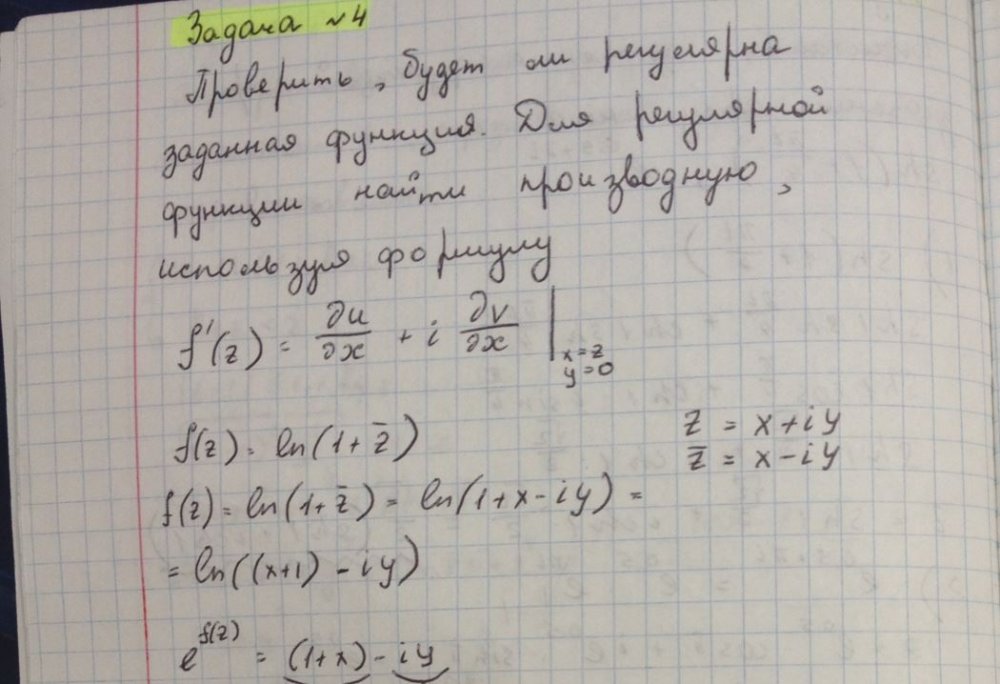 Задача №4
Проверить, будет ли регулярна
заданная функция. Для регулярной
функции найти производную,
используя формулу
f'(z) = ∂u/∂x + i ∂v/∂x |x=z y=0
f(z) = ln(1+z̄)
z = x+iy
z̄ = x-iy
f(z) = ln(1+z̄) = ln(1+x-iy) =
= ln((x+1) - iy)
e^f(z) = (1+x) - iy